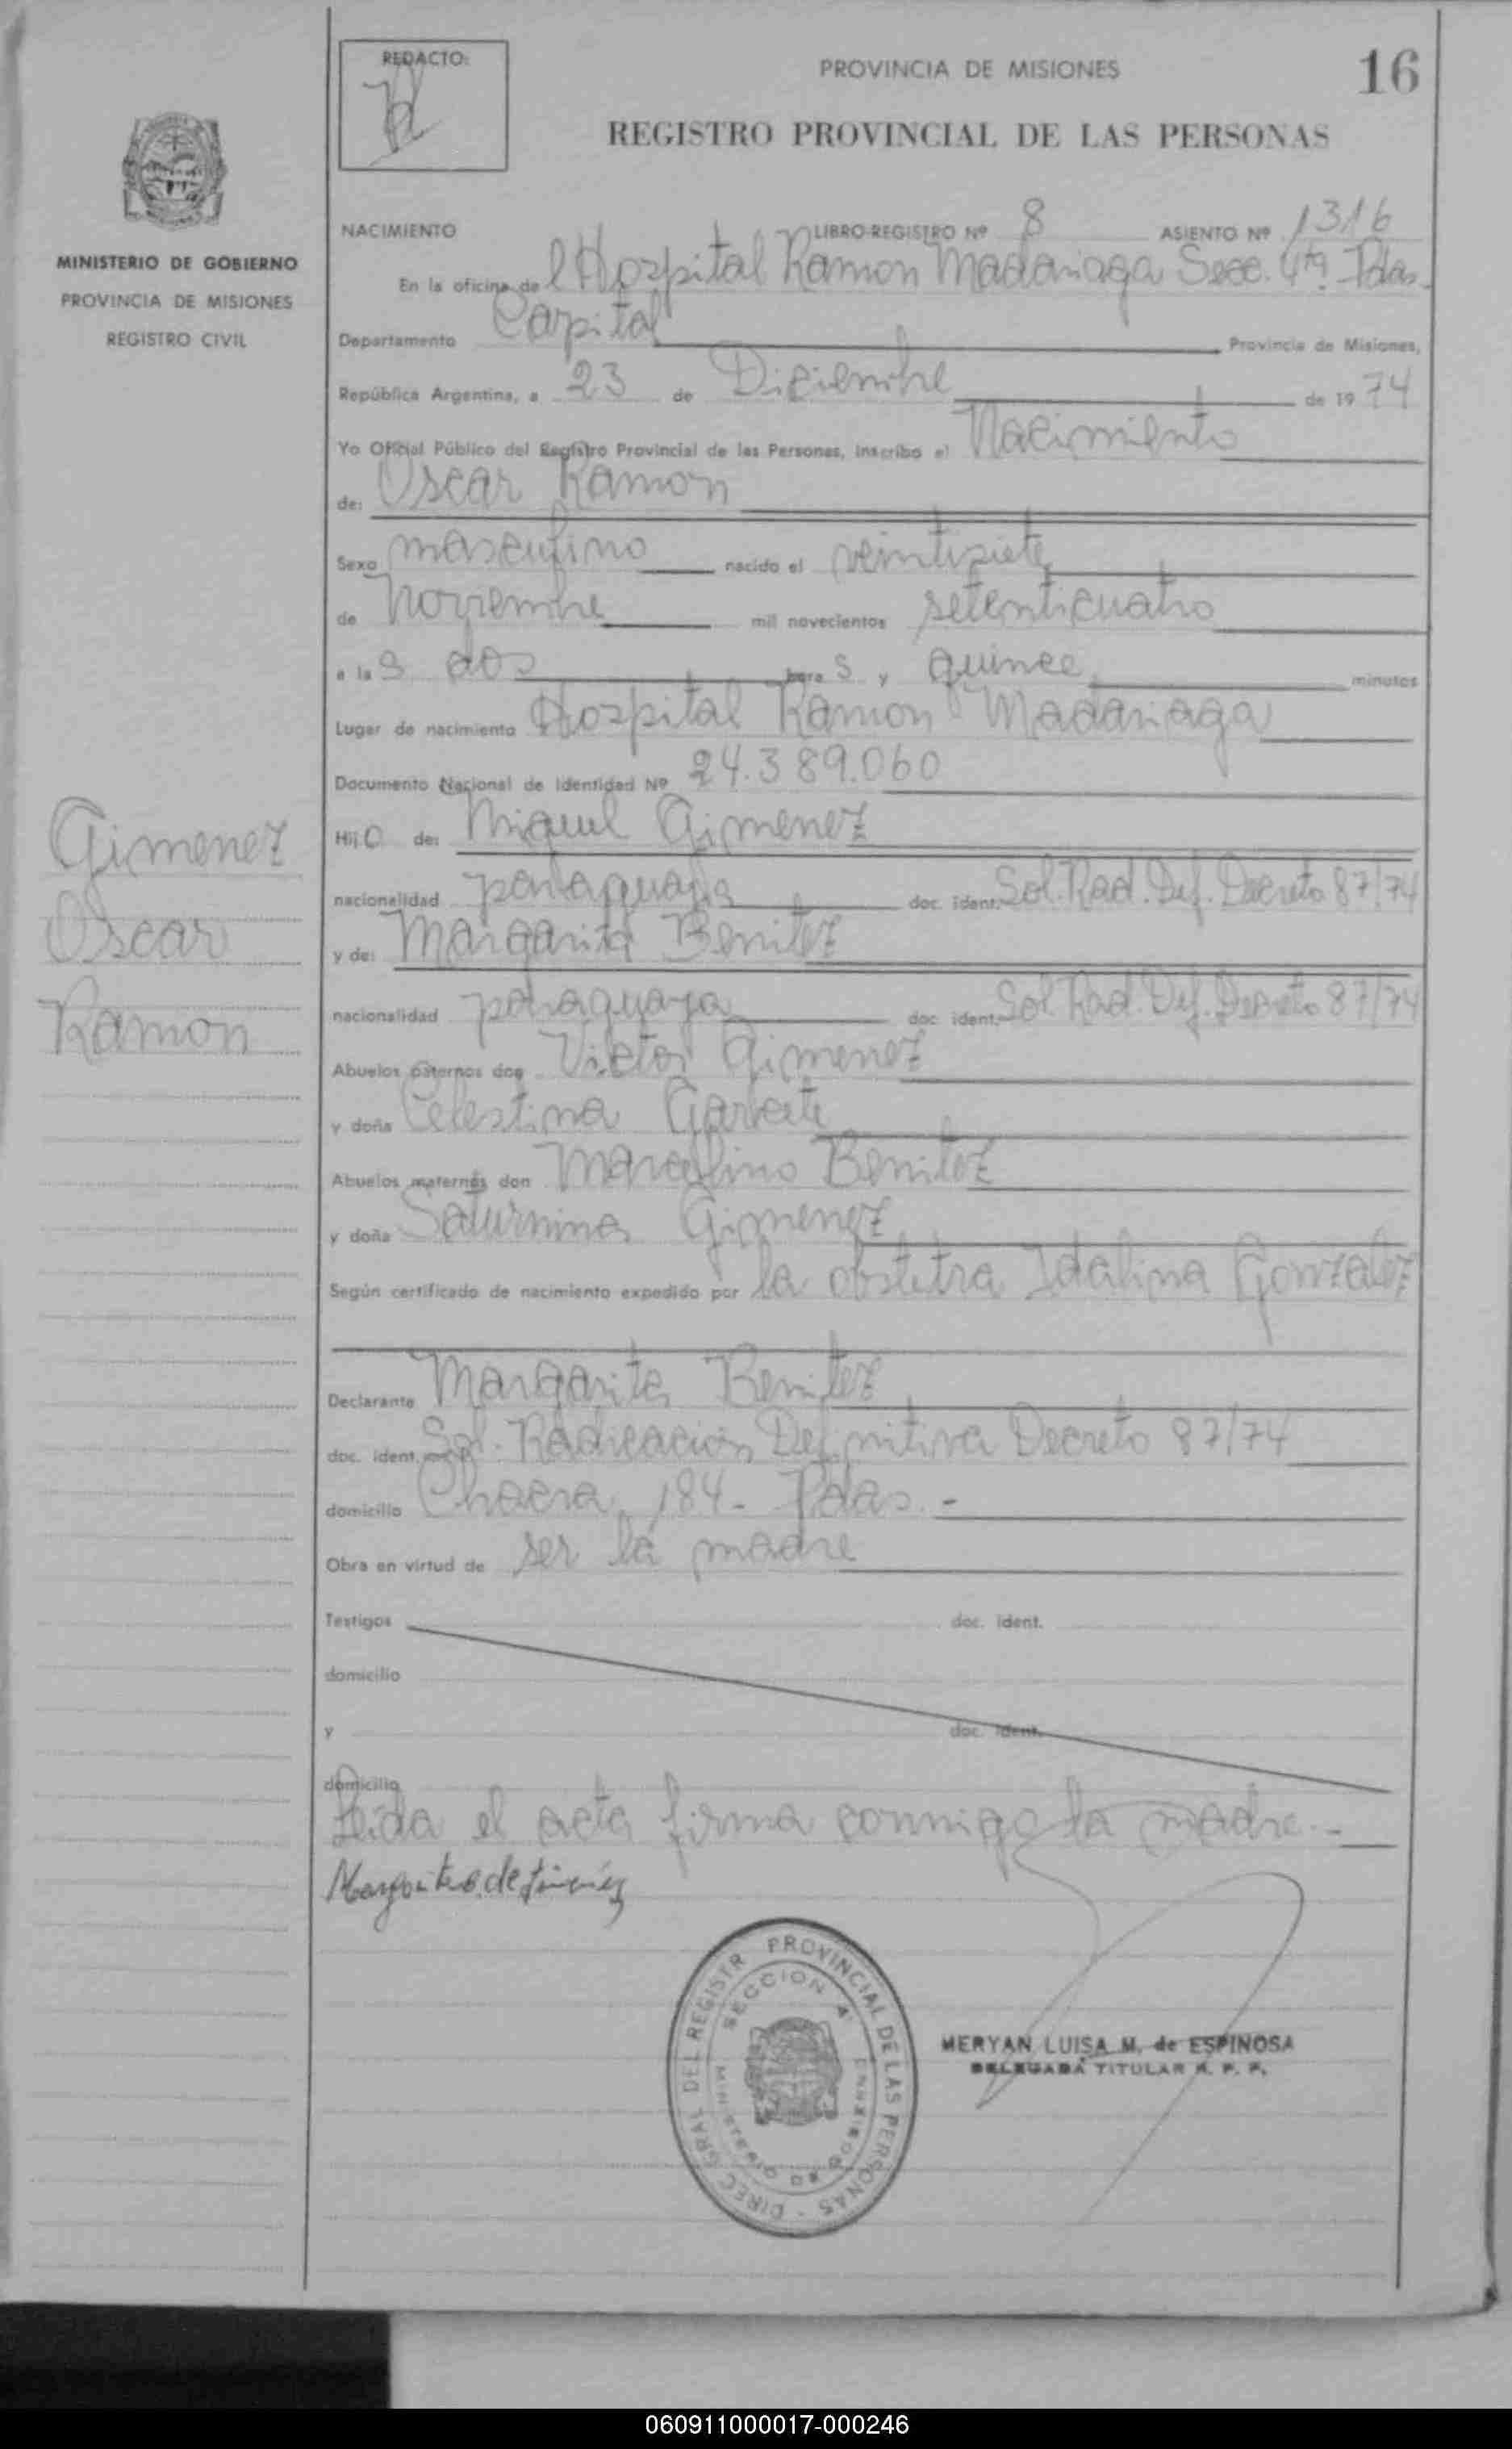 REDACTO:
PROVINCIA DE MISIONES
16
REGISTRO PROVINCIAL DE LAS PERSONAS
MINISTERIO DE GOBIERNO
PROVINCIA DE MISIONES
REGISTRO CIVIL
NACIMIENTO LIBRO-REGISTRO Nº 8 ASIENTO Nº 1316
En la oficina del Hospital Ramon Madariaga Secc. 4ta. Pdas.
Departamento Capital Provincia de Misiones,
República Argentina, a 23 de Diciembre de 1974
Yo Oficial Público del Registro Provincial de las Personas, inscribo el Nacimiento
de: Oscar Ramon
Sexo masculino nacido el veintisiete
de noviembre mil novecientos setenticuatro
a las dos horas y quince minutos
Lugar de nacimiento Hospital Ramon Madariaga
Documento Nacional de Identidad Nº 24.389.060
Hijo de: Miguel Gimenez
nacionalidad paraguaya doc. ident. Sol. Rad. Def. Decreto 87/74
y de: Margarita Benitez
nacionalidad paraguaya doc. ident. Sol. Rad. Def. Decreto 87/74
Abuelos paternos don Victor Gimenez
y doña Celestina Garcete
Abuelos maternos don Marcelino Benitez
y doña Saturnina Gimenez
Según certificado de nacimiento expedido por la obstetra Idalina Gonzalez
Declarante Margarita Benitez
doc. ident. Sol. Radicación Definitiva Decreto 87/74
domicilio Chacra 184- Pdas.-
Obra en virtud de ser la madre
Testigos doc. ident.
domicilio
y doc. ident.
domicilio
Leida el acta firma conmigo la madre.-
Gimenez
Oscar
Ramon
DIREC. GRAL DEL REGISTR PROVINCIAL DE LAS PERSONAS -
SECCION 4ª
MINISTERIO DE GOBIERNO
MERYAN LUISA M. de ESPINOSA
DELEGADA TITULAR R. P. P.
060911000017-000246